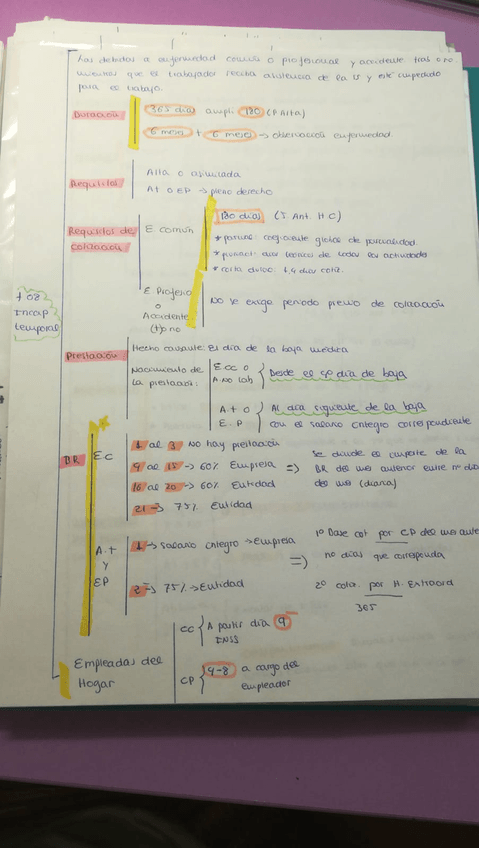 Las debidas a enfermedad común o profesional y accidente tras o no
mientras que el trabajador reciba asistencia de la SS y esté impedido
para el trabajo.
Duración
365 días ampli 180 (P Alta)
6 meses + 6 meses → observación enfermedad
Requisitos
Alta o asimilada
At o EP → pleno derecho
Requisitos de
cotización
E. común
180 días (5 Ant. H C)
* parcial: coeficiente global de parcialidad.
* días teóricos de todas las actividades
* corta durac: 1,4 días cotiz.
E. Profesio
o
Accidente
(+) o no
No se exige periodo previo de cotización
t 08
Incap
temporal
Prestación
Hecho causante: El día de la baja médica
Nacimiento de
la prestación:
E.CC o
A. No lab
Desde el 4º día de baja
A.t o
E.P
Al día siguiente de la baja
con el salario íntegro correspondiente
BR
E.C
1 al 3 No hay prestación
4 al 15 → 60% Empresa =>
16 al 20 → 60% Entidad
21 → 75% Entidad
Se divide el importe de la
BR del mes anterior entre nº días
del mes (diaria)
A.t
y
EP
1 → salario íntegro → Empresa
2 → 75% → Entidad
=>
1º Base cot por CP del mes ante
nº días que corresponda
2º cotiz. por H. Extraord
365
Empleadas del
Hogar
CC
A partir día 9
INSS
CP
4-8 a cargo del
empleador